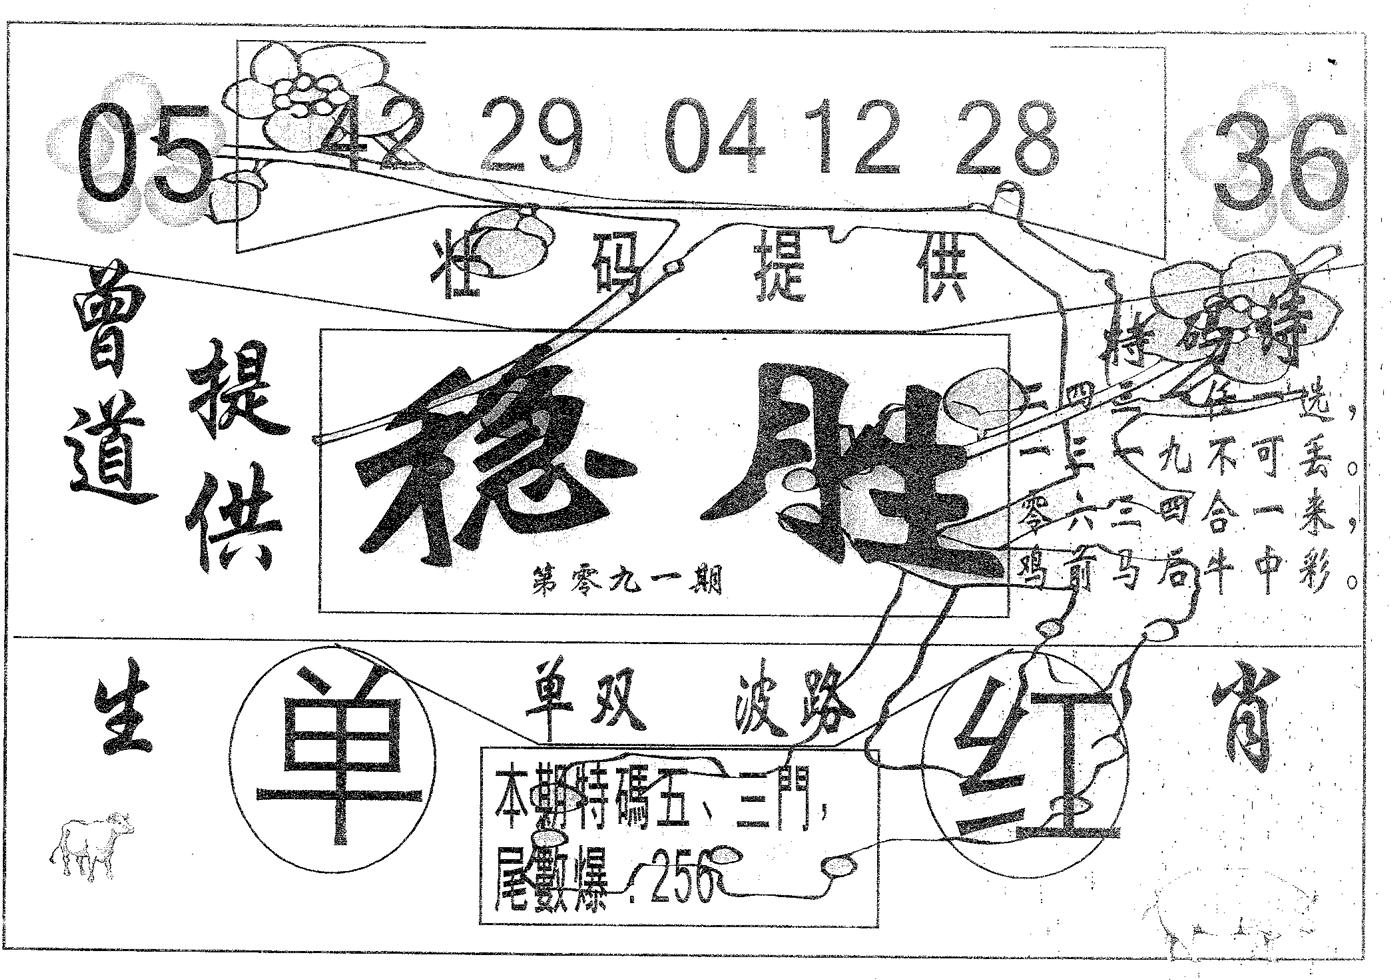 05 42 29 04 12 28 36
壮码提供
曾道
提供
稳胜
第零九一期
特码诗
二四三七任一选，
一三一九不可丢。
零六三四合一来，
鸡前马后牛中彩。
生
单
单双 波路
红
肖
本期特碼五、三門，
尾數爆.256